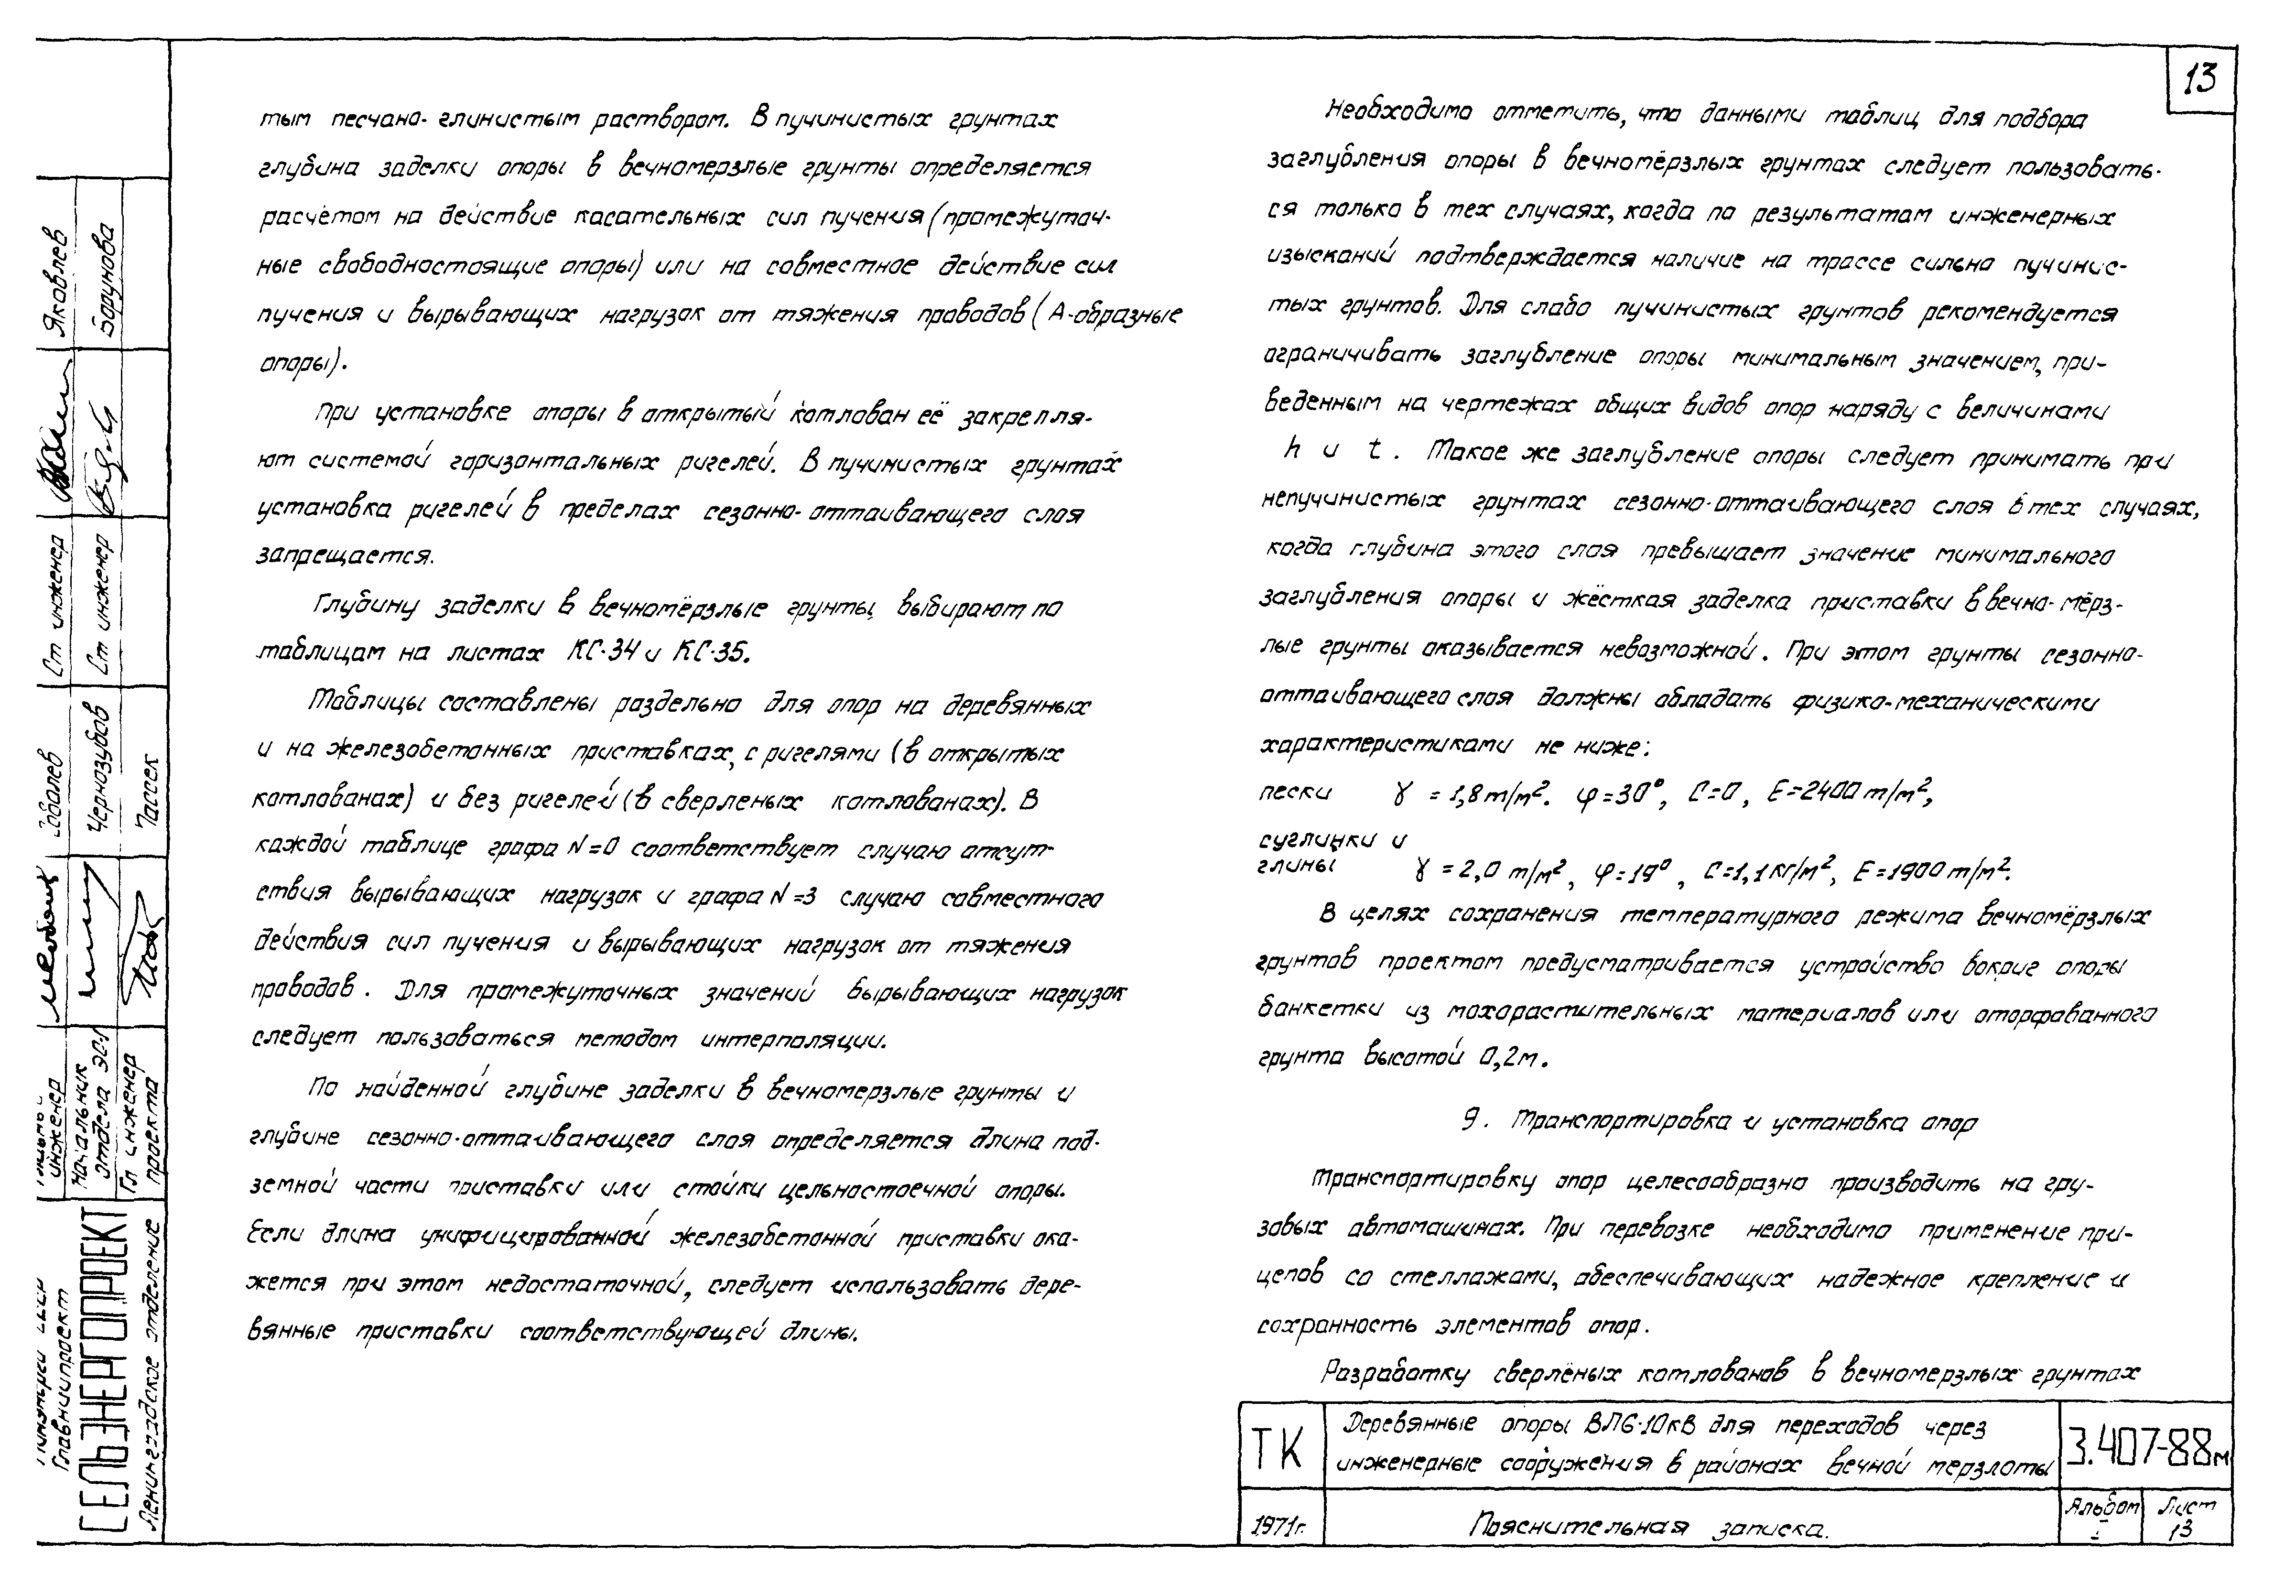 13
тым песчано-глинистым раствором. В пучинистых грунтах
глубина заделки опоры в вечномерзлые грунты определяется
расчётом на действие касательных сил пучения (промежуточ-
ные свободностоящие опоры) или на совместное действие сил
пучения и вырывающих нагрузок от тяжения проводов (А-образные
опоры).
При установке опоры в открытый котлован её закрепля-
ют системой горизонтальных ригелей. В пучинистых грунтах
установка ригелей в пределах сезонно-оттаивающего слоя
запрещается.
Глубину заделки в вечномёрзлые грунты выбирают по
таблицам на листах КС-34 и КС-35.
Таблицы составлены раздельно для опор на деревянных
и на железобетонных приставках, с ригелями (в открытых
котлованах) и без ригелей (в сверленых котлованах). В
каждой таблице графа N=0 соответствует случаю отсут-
ствия вырывающих нагрузок и графа N=3 случаю совместного
действия сил пучения и вырывающих нагрузок от тяжения
проводов. Для промежуточных значений вырывающих нагрузок
следует пользоваться методом интерполяции.
По найденной глубине заделки в вечномерзлые грунты и
глубине сезонно-оттаивающего слоя определяется длина под-
земной части приставки или стойки цельностоечной опоры.
Если длина унифицированной железобетонной приставки ока-
жется при этом недостаточной, следует использовать дере-
вянные приставки соответствующей длины.
Необходимо отметить, что данными таблиц для подбора
заглубления опоры в вечномёрзлых грунтах следует пользовать-
ся только в тех случаях, когда по результатам инженерных
изысканий подтверждается наличие на трассе сильно пучинис-
тых грунтов. Для слабо пучинистых грунтов рекомендуется
ограничивать заглубление опоры минимальным значением, при-
веденным на чертежах общих видов опор наряду с величинами
h и t. Такое же заглубление опоры следует принимать при
непучинистых грунтах сезонно-оттаивающего слоя в тех случаях,
когда глубина этого слоя превышает значение минимального
заглубления опоры и жёсткая заделка приставки в вечно-мёрз-
лые грунты оказывается невозможной. При этом грунты сезонно-
оттаивающего слоя должны обладать физико-механическими
характеристиками не ниже:
пески γ = 1,8 т/м². φ=30°, С=0, Е=2400 т/м²,
суглинки и
глины γ = 2,0 т/м², φ=19°, С=1,1кг/м², Е=1900 т/м².
В целях сохранения температурного режима вечномёрзлых
грунтов проектом предусматривается устройство вокруг опоры
банкетки из мохорастительных материалов или оторфованного
грунта высотой 0,2м.
9. Транспортировка и установка опор
Транспортировку опор целесообразно производить на гру-
зовых автомашинах. При перевозке необходимо применение при-
цепов со стеллажами, обеспечивающих надежное крепление и
сохранность элементов опор.
Разработку сверлёных котлованов в вечномерзлых грунтах
ТК
Деревянные опоры ВЛ6-10кВ для переходов через
инженерные сооружения в районах вечной мерзлоты
3.407-88м
1971г.
Пояснительная записка.
Альбом
I
Лист
13
Яковлев
Борунова
Ст инженер
Ст инженер
Чернозубов
Пассек
инженер
Начальник
отдела
Гл инженер
проекта
Главниипроект
СЕЛЬЭНЕРГОПРОЕКТ
Ленинградское отделение